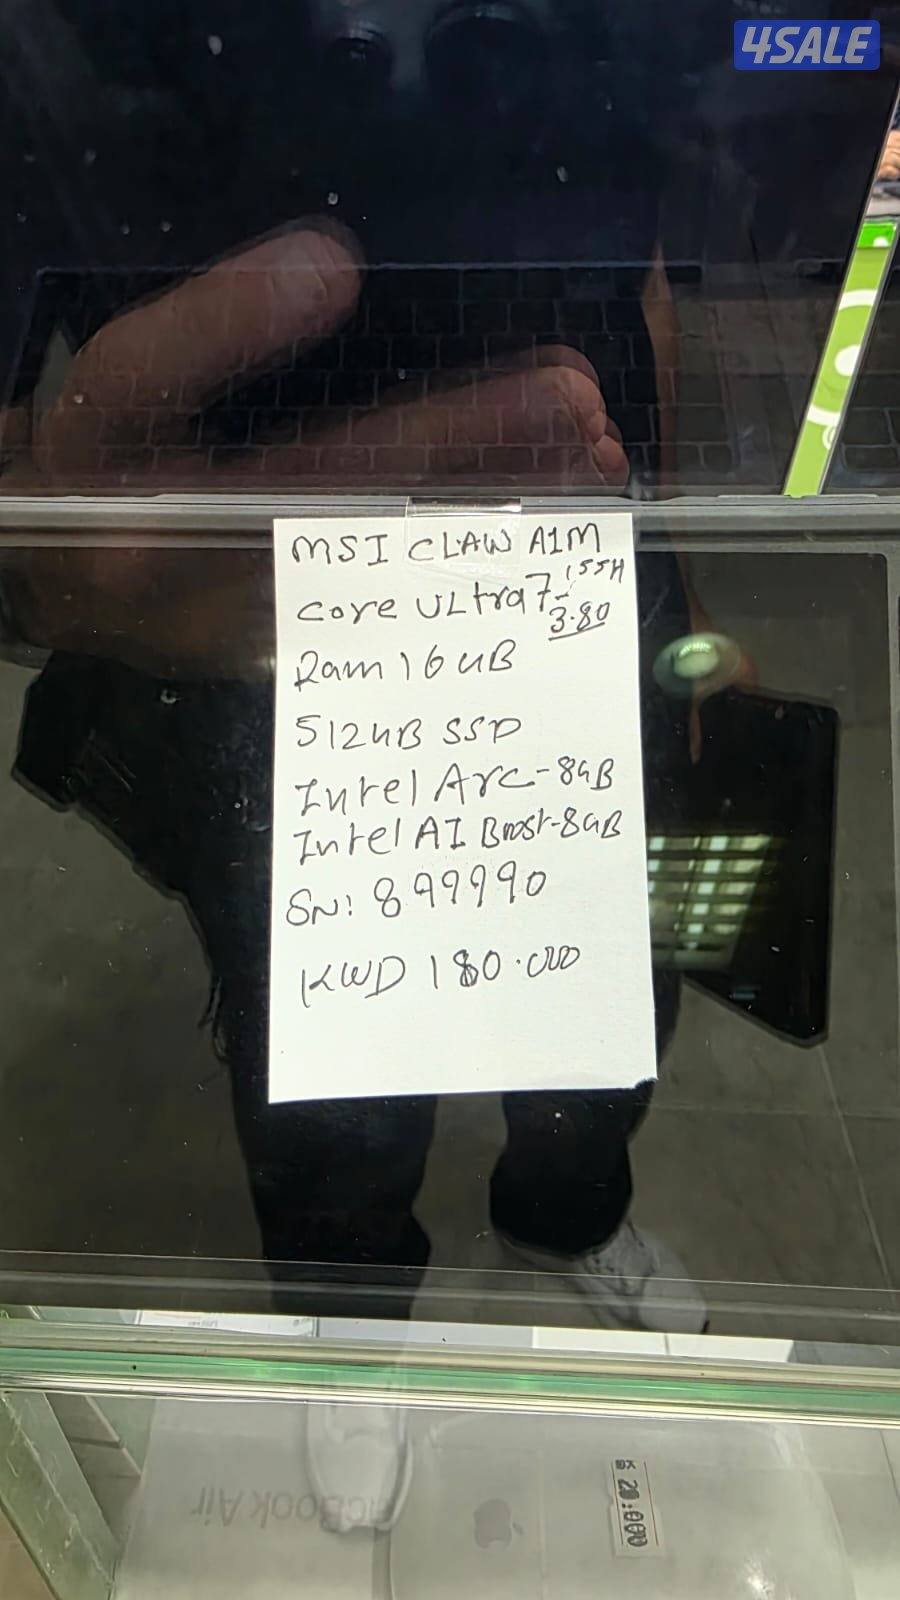 4SALE
MSI CLAW A1M
Core ULtra 7-155H
3.80
Ram 16GB
512GB SSD
Intel Arc-8GB
Intel AI Boost-8GB
SN: 899990
KWD 180.000
20:000
MacBook Air